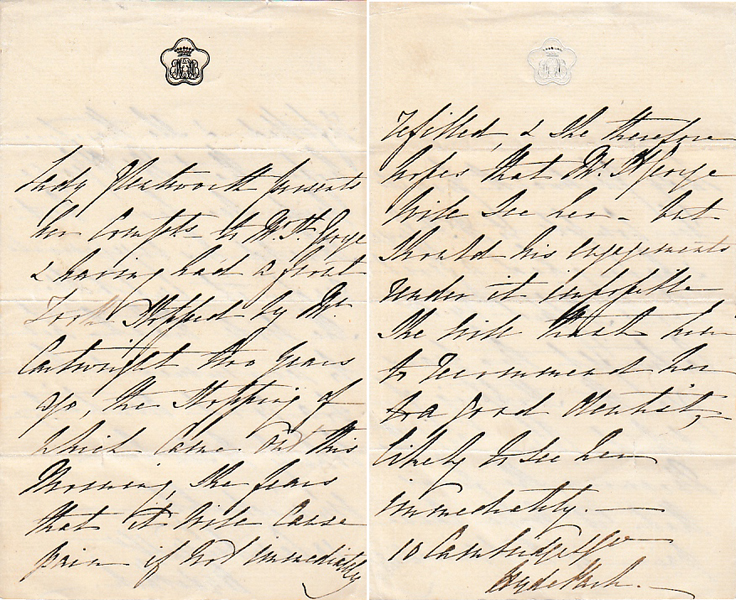 Lady Wentworth presents
her Compts to Mr St George
& having had a front
Tooth Stopped by Mr
Cartwright two years
ago, the Stopping of
which came out this
Morning, She fears
that it will cause
pain if not immediately
refilled, & She therefore
hopes that Mr St George
will See her - but
Should his engagements
render it impossible
She will thank him
to recommend her
to a good dentist,
likely to see her
immediately. —
10 Cambridge Sqre
Hyde Park. —